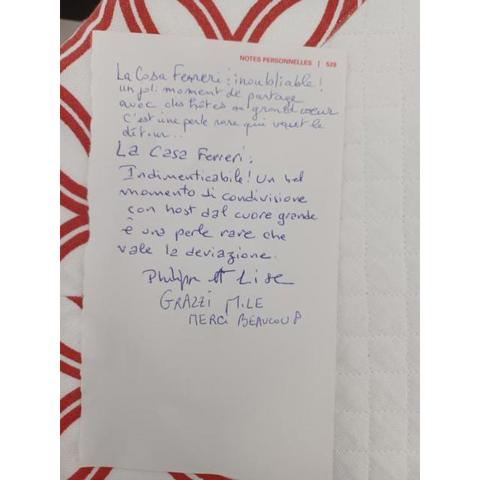 NOTES PERSONNELLES | 529
La Casa Ferreri : inoubliable !
un joli moment de partage
avec des hôtes au grand coeur
C'est une perle rare qui vaut le
détour...
La Casa Ferreri :
Indimenticabile ! Un bel
momento di condivisione
con host dal cuore grande
è una perle rare che
vale la deviazione.
Philippe et Lise
GRAZZI MILE
MERCI BEAUCOUP